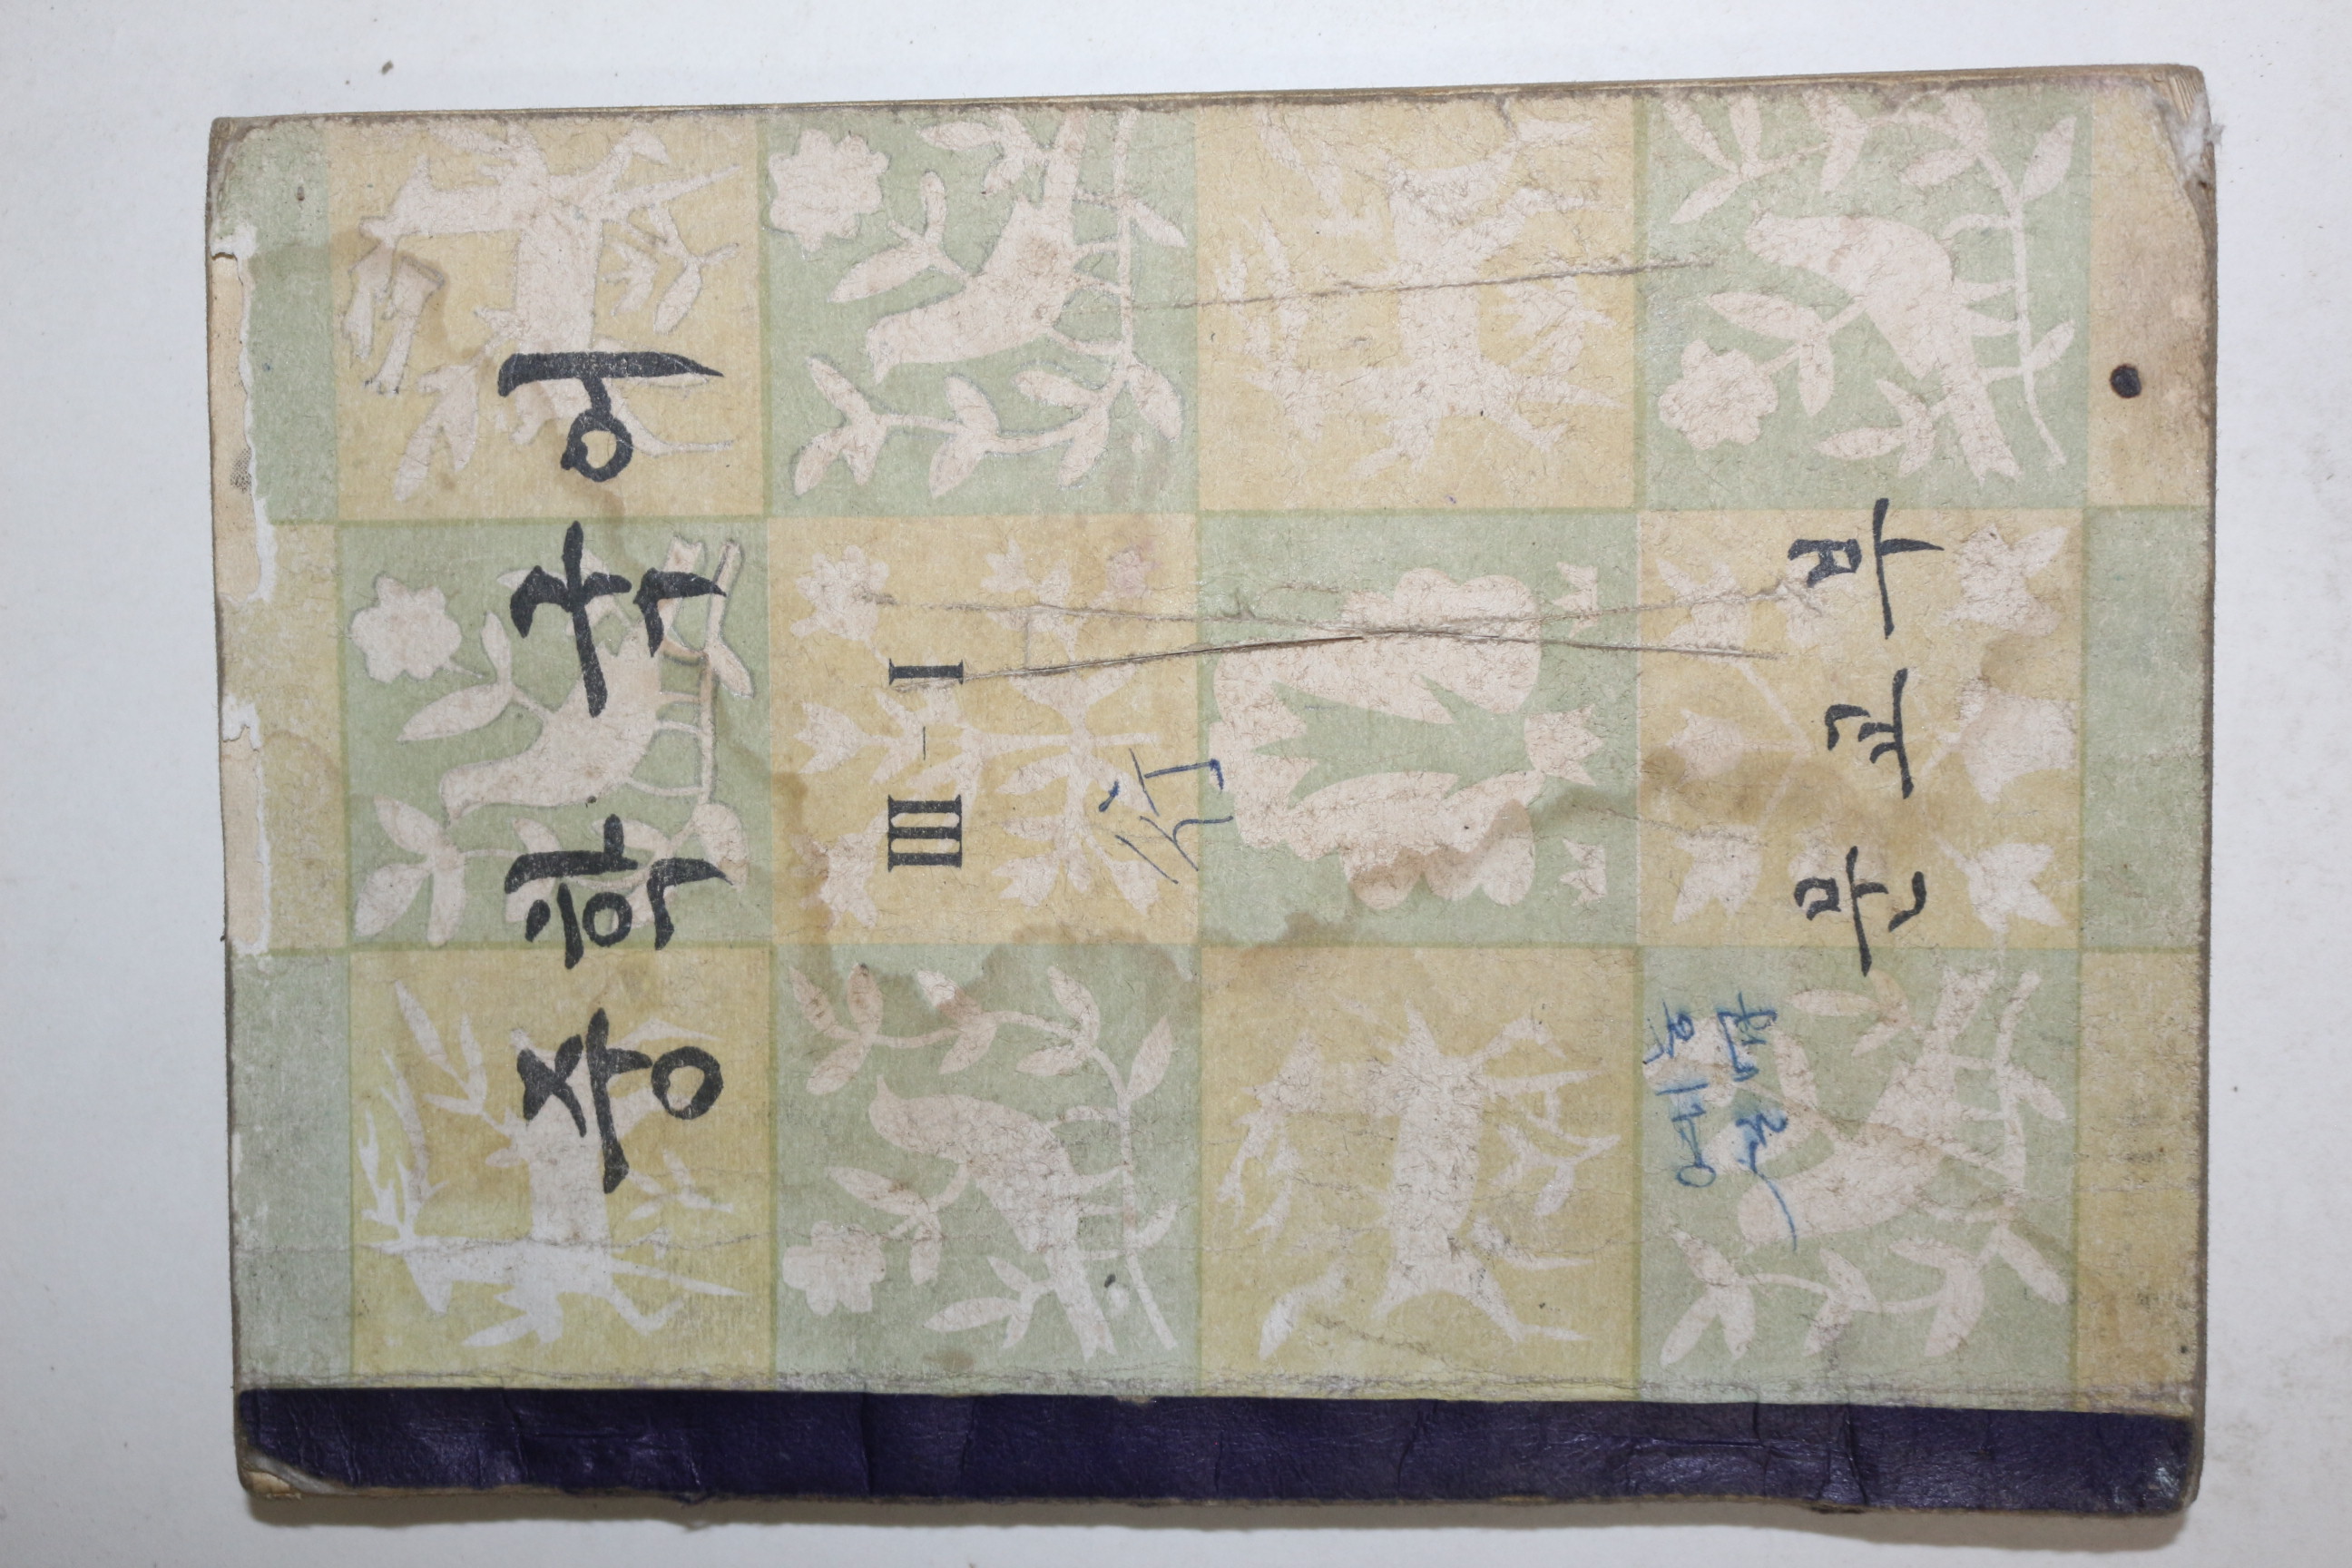 중학국어
III-I
문교부